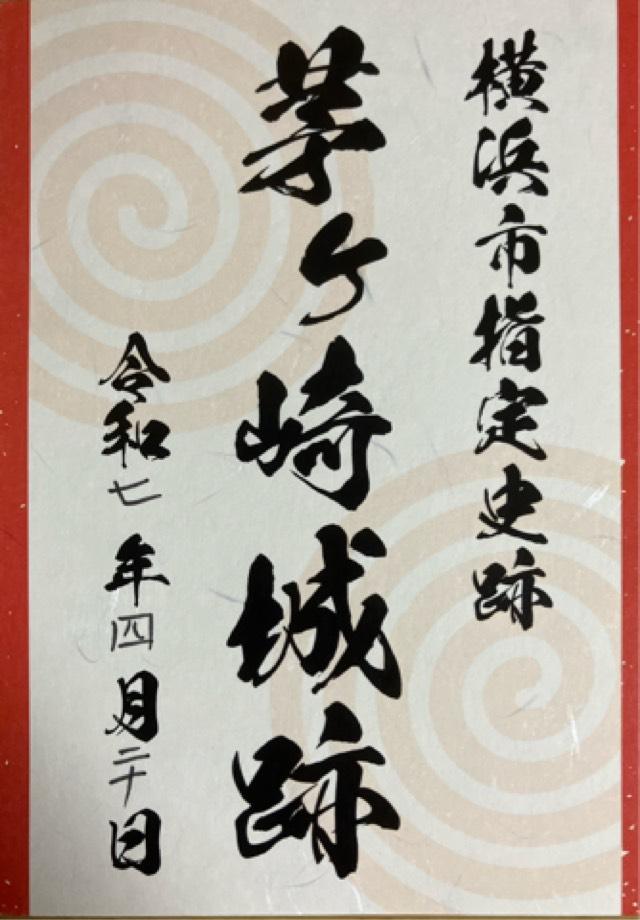 横浜市指定史跡
茅ヶ崎城跡
令和七年四月二十日